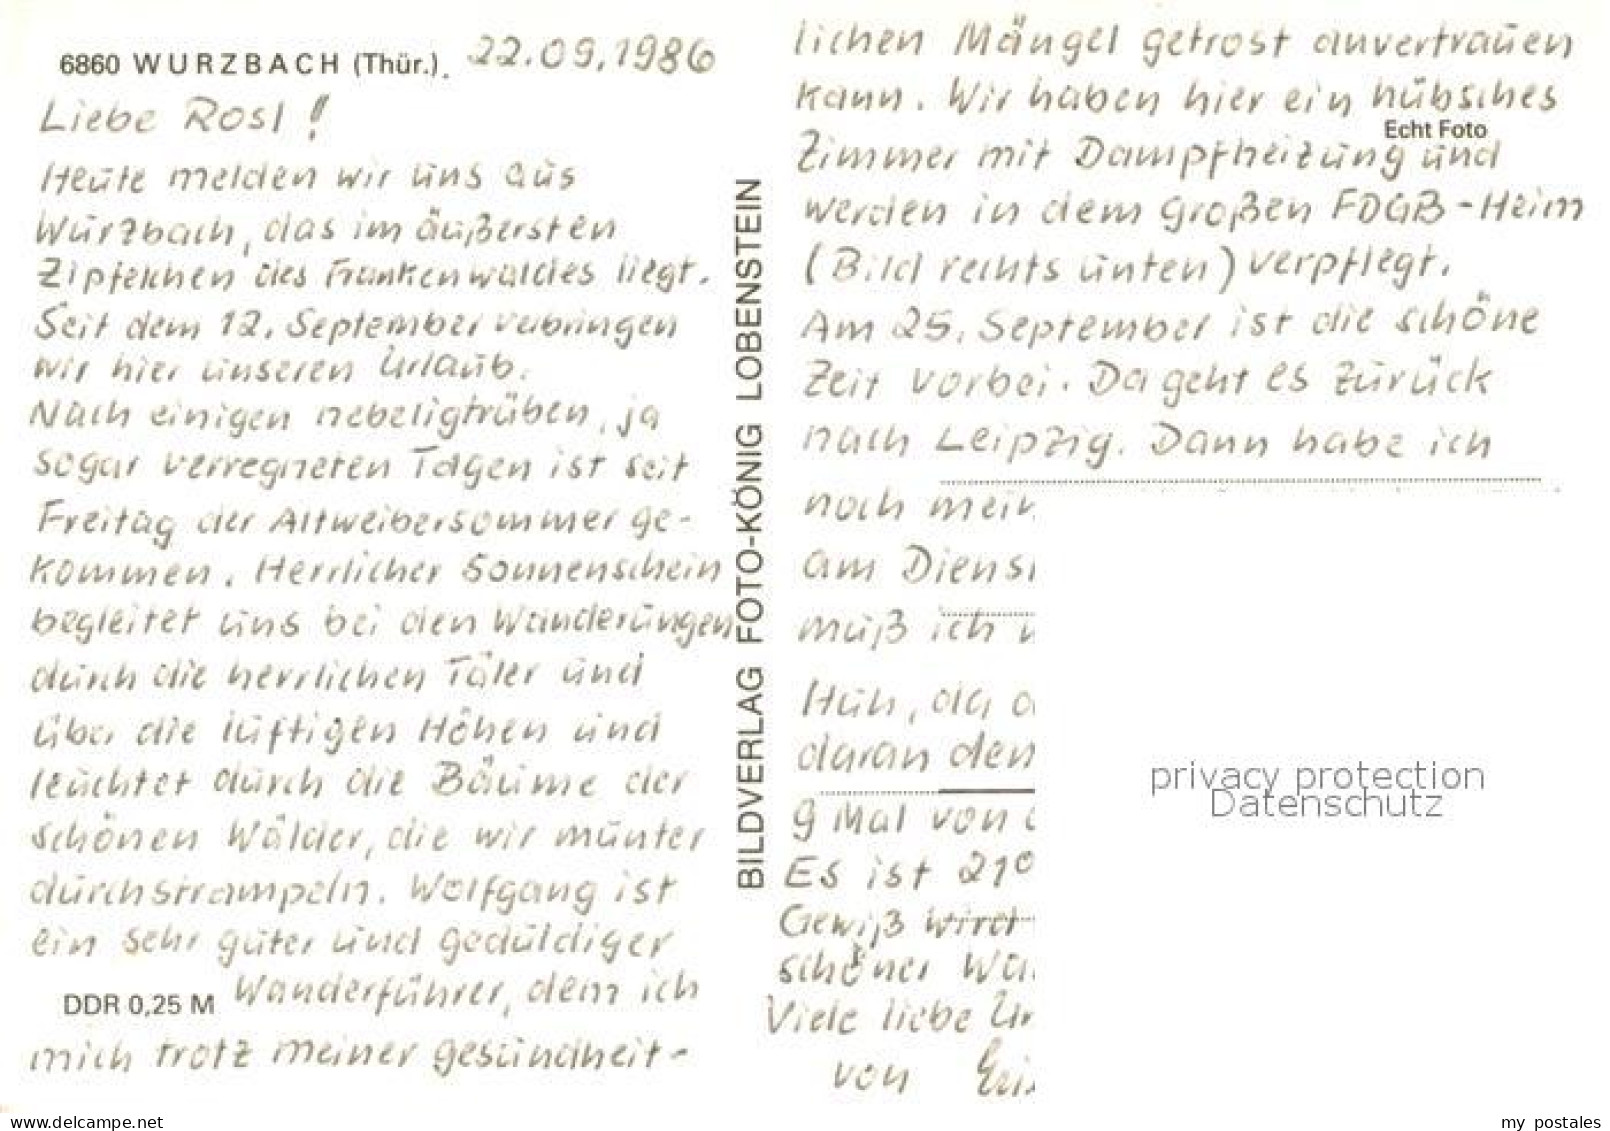 6860 WURZBACH (Thür.). 22.09.1986
Liebe Rosl!
Heute melden wir uns aus
Wurzbach, das im äußersten
Zipfelchen des Frankenwaldes liegt.
Seit dem 12. September verbringen
wir hier unseren Urlaub.
Nach einigen nebeligtrüben, ja
sogar verregneten Tagen ist seit
Freitag der Altweibersommer ge-
kommen. Herrlicher Sonnenschein
begleitet uns bei den Wanderungen
durch die herrlichen Täler und
über die luftigen Höhen und
leuchtet durch die Bäume der
schönen Wälder, die wir munter
durchstrampeln. Wolfgang ist
ein sehr guter und geduldiger
DDR 0,25 M Wanderführer, dem ich
mich trotz meiner gesundheit-
BILDVERLAG FOTO-KÖNIG LOBENSTEIN
lichen Mängel getrost anvertrauen
kann. Wir haben hier ein hübsches
Echt Foto
Zimmer mit Dampfheizung und
werden in dem großen FDGB-Heim
(Bild rechts unten) verpflegt.
Am 25. September ist die schöne
Zeit vorbei. Da geht es zurück
nach Leipzig. Dann habe ich
noch mein
am Diens
muß ich
da
daran den
9 Mal von
Es ist 21°
Gewiß wird
schöner
Viele liebe
von
privacy protection
Datenschutz
www.delcampe.net
my_postales